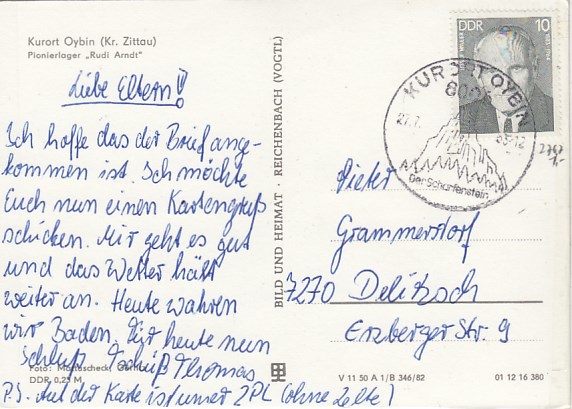 Kurort Oybin (Kr. Zittau)
Pionierlager „Rudi Arndt"
Liebe Eltern!
Ich hoffe das der Brief ange-
kommen ist. Ich möchte
Euch nun einen Kartengruß
schicken. Mir geht es gut
und das Wetter hält
weiter an. Heute wahren
wir Baden. Für heute nun
Schluß Tschüß Thomas
P.S. Auf der Karte ist unser ZPL (ohne Zelte)
Foto:
DDR 0,25 M
BILD UND HEIMAT · REICHENBACH (VOGTL)
DDR 10
KURORT OYBIN
27.7.
Der Scharfenstein
Dieter
Grammersdorf
7270 Delitzsch
Erzberger Str. 9
V 11 50 A 1/B 346/82
01 12 16 380